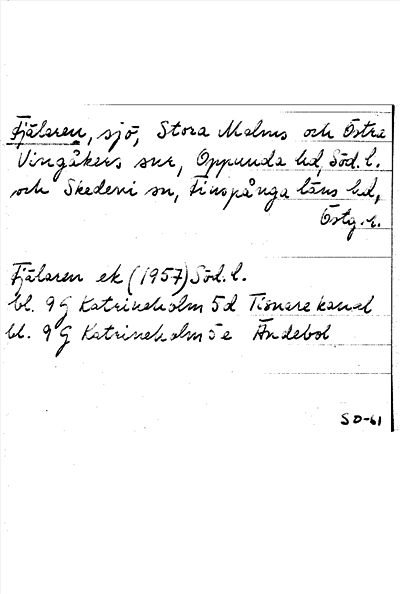 Fjälaren, sjö, Stora Malms och Östra
Vingåkers snr, Oppunda hd, Söd. l.
och Skedevi sn, Finspånga läns hd,
Östg. l.
Fjälaren ek (1957) Söd. l.
bl. 9 G Katrineholm 5d Tisnare kanal
bl. 9 G Katrineholm 5e Ändebol
SD-61